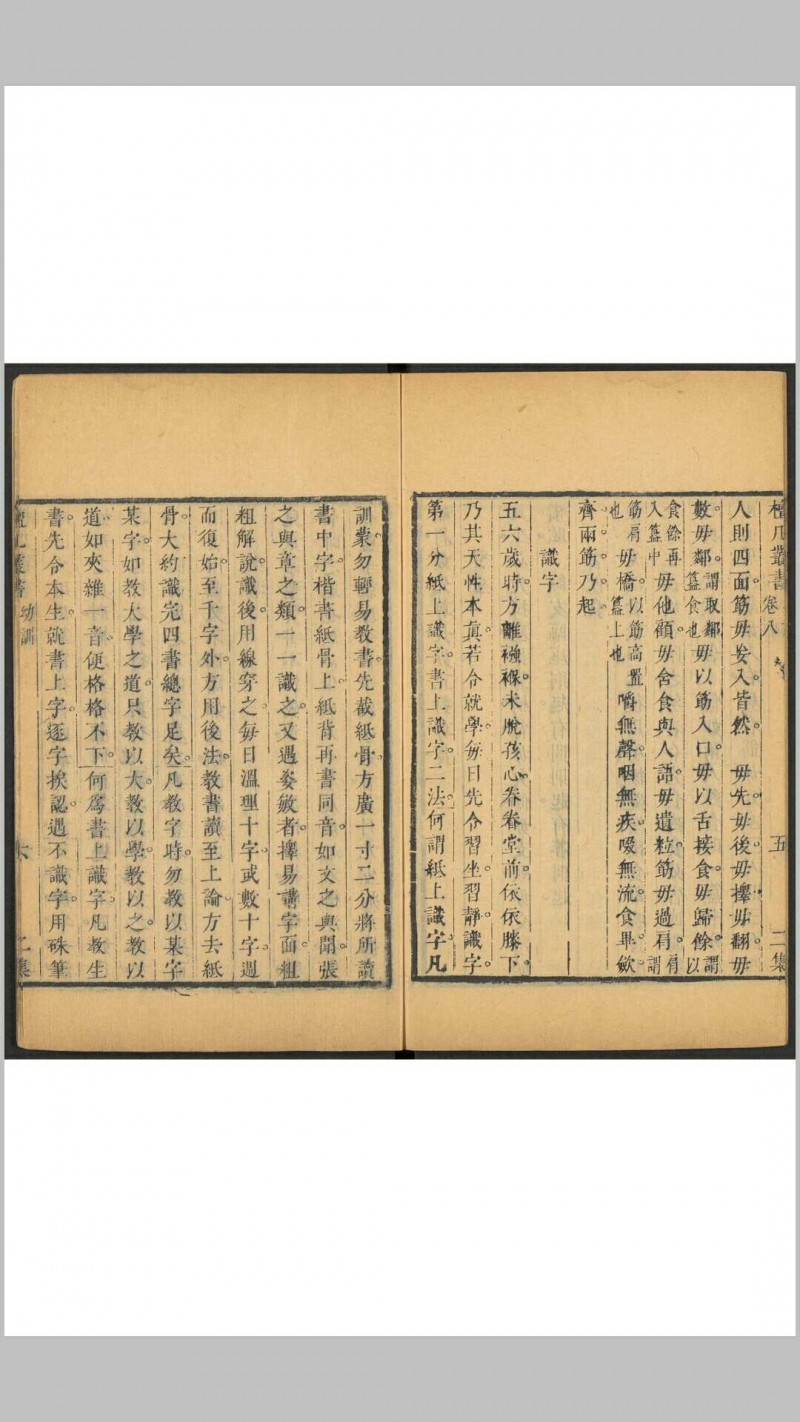 檀几叢書 卷八 五 二集
人則四面筯毋妄入皆然 毋先毋後毋擇毋翻毋
數毋鄰謂取鄰簋食也毋以筯入口毋以舌接食毋歸餘謂以
食餘再入簋中毋他顧毋含食與人語毋遺粒筯毋過肩謂肩
筯肩也毋橋以筯高置簋上也嚼無聲咽無疾啜無流食畢斂
齊兩筯乃起
識字
五六歲時方離襁褓未脫孩心眷眷堂前依依膝下
乃其天性本真若令就學毎日先令習坐習靜識字
第一分紙上識字書上識字二法何謂紙上識字凡
訓蒙勿輕易教書先截紙骨方廣一寸二分將所讀
書中字楷書紙骨上紙背再書同音如文之與聞張
之與章之類一一識之又遇姿敏者擇易講字面粗
粗解說識後用線穿之每日溫理十字或數十字週
而復始至千字外方用後法教書讀至上論方去紙
骨大約識完四書總字足矣凡教字時勿教以某字
某字如教大學之道只教以大教以學教以之教以
道如夾雜一音便格格不下何爲書上識字凡教生
書先令本生就書上字逐字挨認遇不識字用硃筆
檀几叢書 幼訓 六 二集